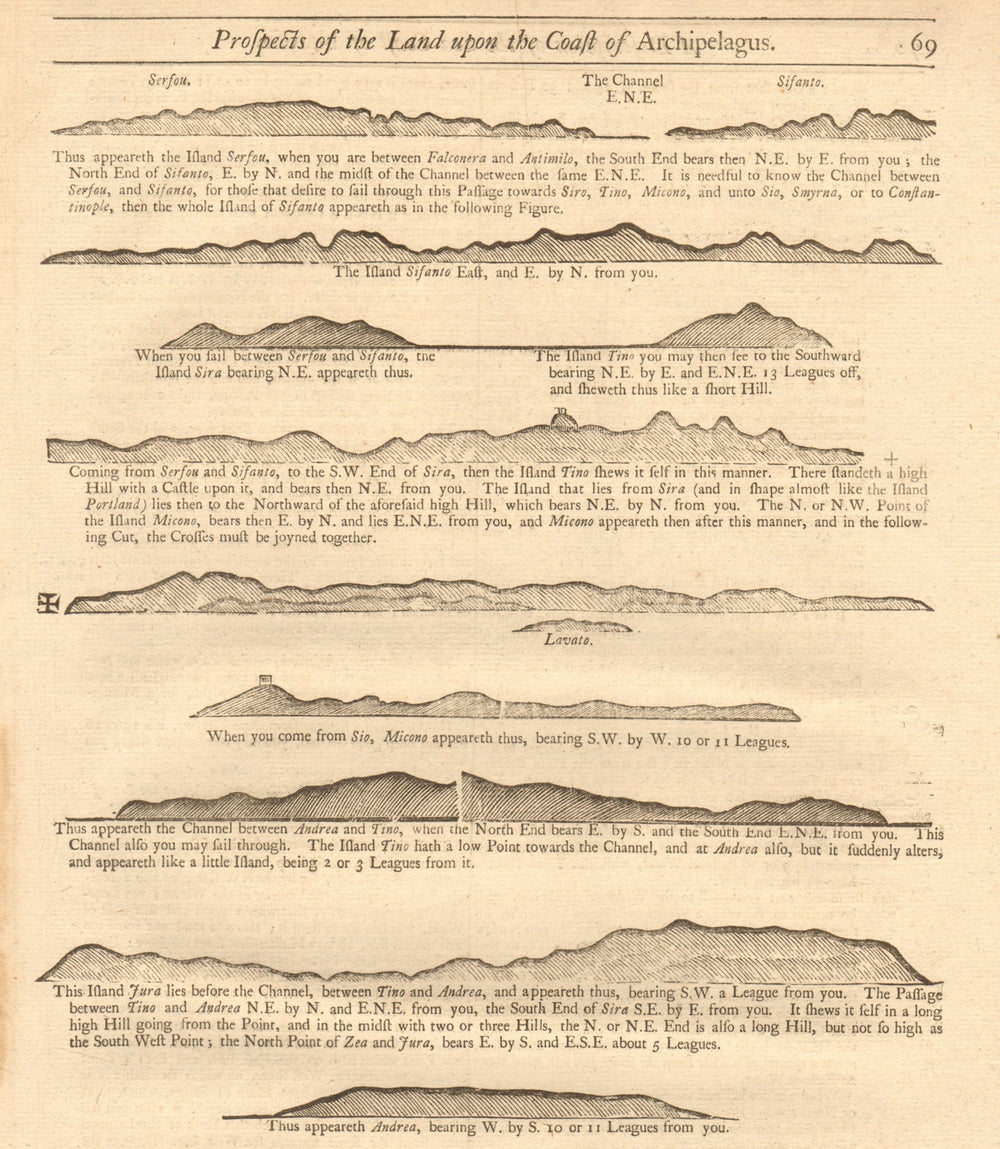 Proſpects of the Land upon the Coaſt of Archipelagus. 69
Serfou. The Channel Sifanto.
E.N.E.
Thus appeareth the Iſland Serfou, when you are between Falconera and Antimilo, the South End bears then N.E. by E. from you; the
North End of Sifanto, E. by N. and the midſt of the Channel between the ſame E.N.E. It is needful to know the Channel between
Serfou, and Sifanto, for thoſe that deſire to ſail through this Paſſage towards Siro, Tino, Micono, and unto Sio, Smyrna, or to Conſtan-
tinople, then the whole Iſland of Sifanto appeareth as in the following Figure.
The Iſland Sifanto Eaſt, and E. by N. from you.
When you ſail between Serfou and Sifanto, the
Iſland Sira bearing N.E. appeareth thus.
The Iſland Tino you may then ſee to the Southward
bearing N.E. by E. and E.N.E. 13 Leagues off,
and ſheweth thus like a ſhort Hill.
Coming from Serfou and Sifanto, to the S.W. End of Sira, then the Iſland Tino ſhews it ſelf in this manner. There ſtandeth a high
Hill with a Caſtle upon it, and bears then N.E. from you. The Iſland that lies from Sira (and in ſhape almoſt like the Iſland
Portland) lies then to the Northward of the aforeſaid high Hill, which bears N.E. by N. from you. The N. or N.W. Point of
the Iſland Micono, bears then E. by N. and lies E.N.E. from you, and Micono appeareth then after this manner, and in the follow-
ing Cut, the Croſſes muſt be joyned together.
Lavato.
When you come from Sio, Micono appeareth thus, bearing S.W. by W. 10 or 11 Leagues.
Thus appeareth the Channel between Andrea and Tino, when the North End bears E. by S. and the South End E.N.E. from you. This
Channel alſo you may ſail through. The Iſland Tino hath a low Point towards the Channel, and at Andrea alſo, but it ſuddenly alters,
and appeareth like a little Iſland, being 2 or 3 Leagues from it.
This Iſland Jura lies before the Channel, between Tino and Andrea, and appeareth thus, bearing S.W. a League from you. The Paſſage
between Tino and Andrea N.E. by N. and E.N.E. from you, the South End of Sira S.E. by E. from you. It ſhews it ſelf in a long
high Hill going from the Point, and in the midſt with two or three Hills, the N. or N.E. End is alſo a long Hill, but not ſo high as
the South Weſt Point; the North Point of Zea and Jura, bears E. by S. and E.S.E. about 5 Leagues.
Thus appeareth Andrea, bearing W. by S. 10 or 11 Leagues from you.